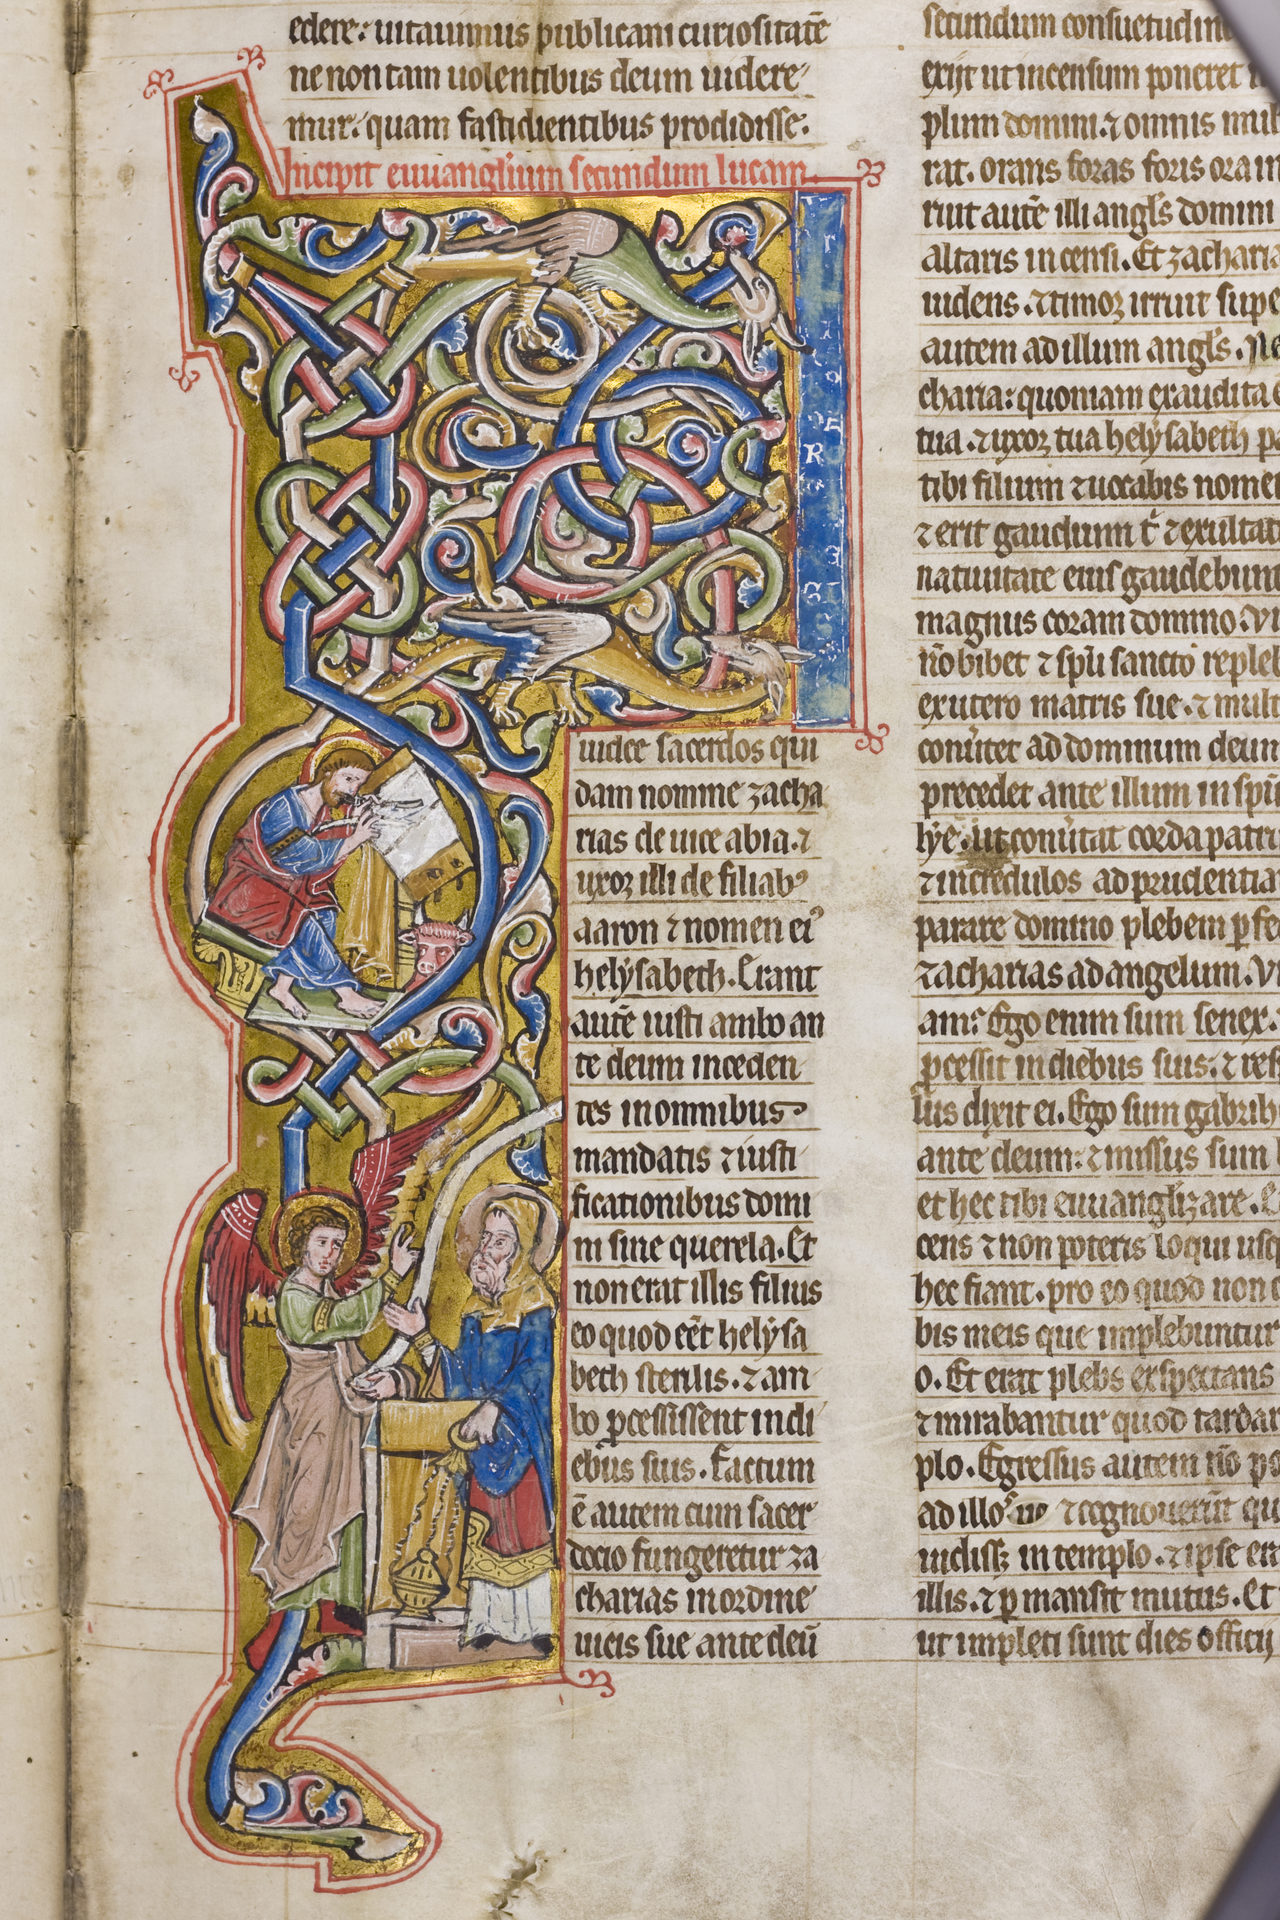 edere: uitauimus publicam curiositatẽ
ne non tam uolentibus deum uidere
mur: quam fastidientibus prodidisse.
Incipit euuanglium secundum lucam.
uidee sacerdos qui
dam nomine zacha
rias de uice abia. ⁊
uxor illi de filiabꝰ
aaron ⁊ nomen eiꝰ
helysabeth. Erant
autẽ iusti ambo an
te deum inceden
tes in omnibus
mandatis ⁊ iusti
ficationibus domi
ni sine querela. Et
non erat illis filius
eo quod eẽt helysa
beth sterilis. ⁊ am
bo ꝓcessissent in di
ebus suis. Factum
ẽ autem cum sacer
docio fungeretur za
charias in ordine
uicis sue ante deũ
secundum consuetudin
exijt ut incensum poneret
plum domini. ⁊ omnis mul
rat. orans foras foris ora in
ruit autẽ illi angl̃s domini
altaris incensi. Et zacharia
uidens. ⁊ timor irruit supe
autem ad illum angl̃s. Ne
charia: quoniam exaudita
tua. ⁊ uxor tua helysabeth p
tibi filium ⁊ uocabis nomen
⁊ erit gaudium t̃ ⁊ exultat
natiuitate eius gaudebunt
magnus coram domino. Vi
ño bibet ⁊ sp̃u sancto repleb
ex utero matris sue. ⁊ mult
conũtet ad dominum deum
precedet ante illum in sp̃u
hye. ut conũtat corda patr
⁊ incredulos ad prudentia
parare domino plebem ꝑfe
⁊ zacharias ad angelum. Vn
am: Ego enim sum senex.
ꝓcessit in diebus suis. ⁊ res
lus dixit ei. Ego sum gabrih
ante deum: ⁊ missus sum
et hec tibi euuanglizare. E
cens ⁊ non poteris loqui usq
hec fiant. pro eo quod non
bis meis que implebuntur
o. Et erat plebs exspectans
⁊ mirabantur quod tardar
plo. Egressus autem ño po
ad illos ⁊ cognouerũt qu
uidiss; in templo. ⁊ ipse era
illis. ⁊ ꝑmansit mutus. Et
ut impleti sunt dies officij